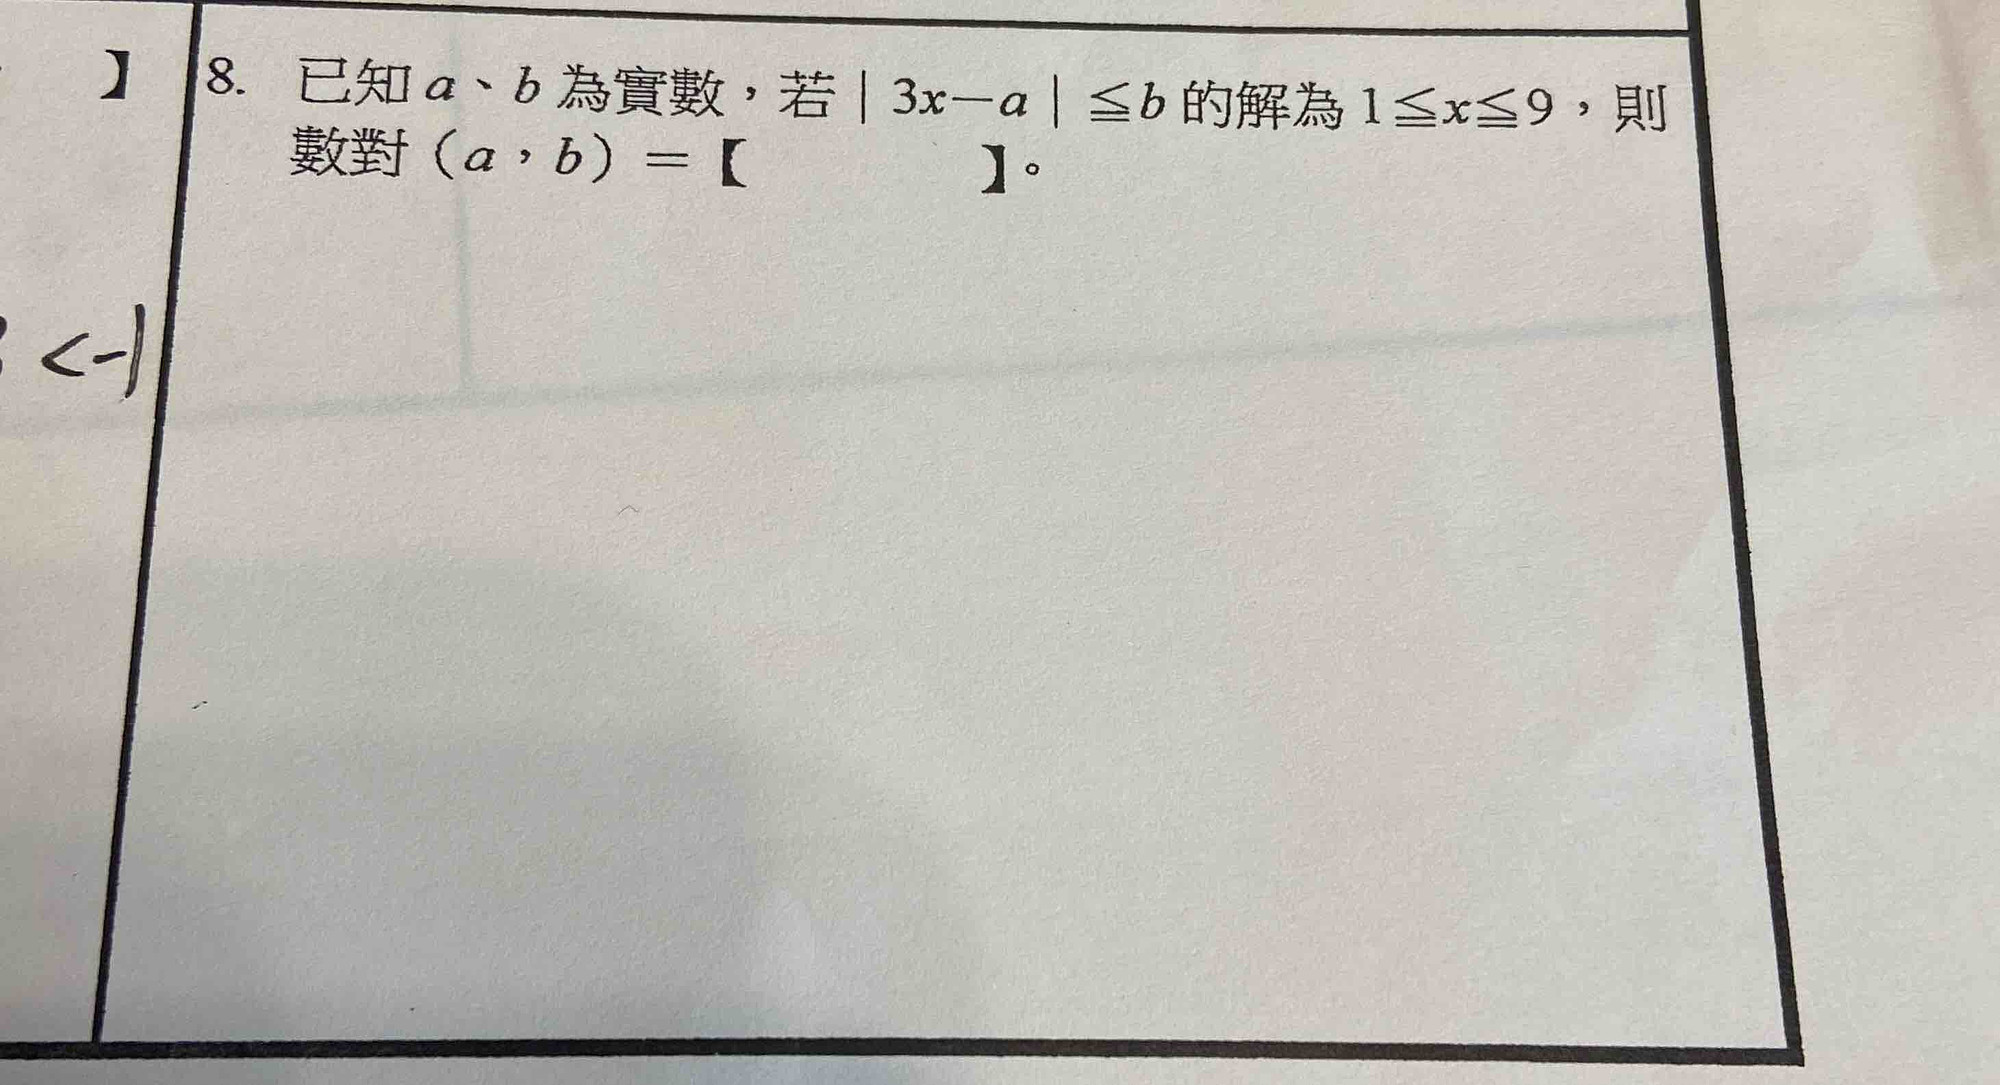 】
8. 已知 a、b 為實數，若 | 3x－a | ≦b 的解為 1≦x≦9，則
數對（a，b）＝【 】。
<-1